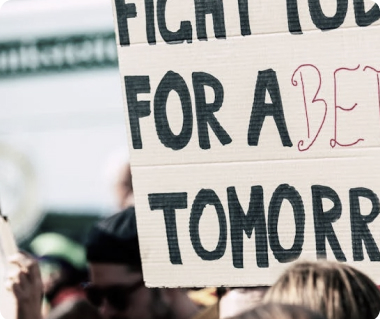 FIGHT TOD
FOR A BET
TOMORR